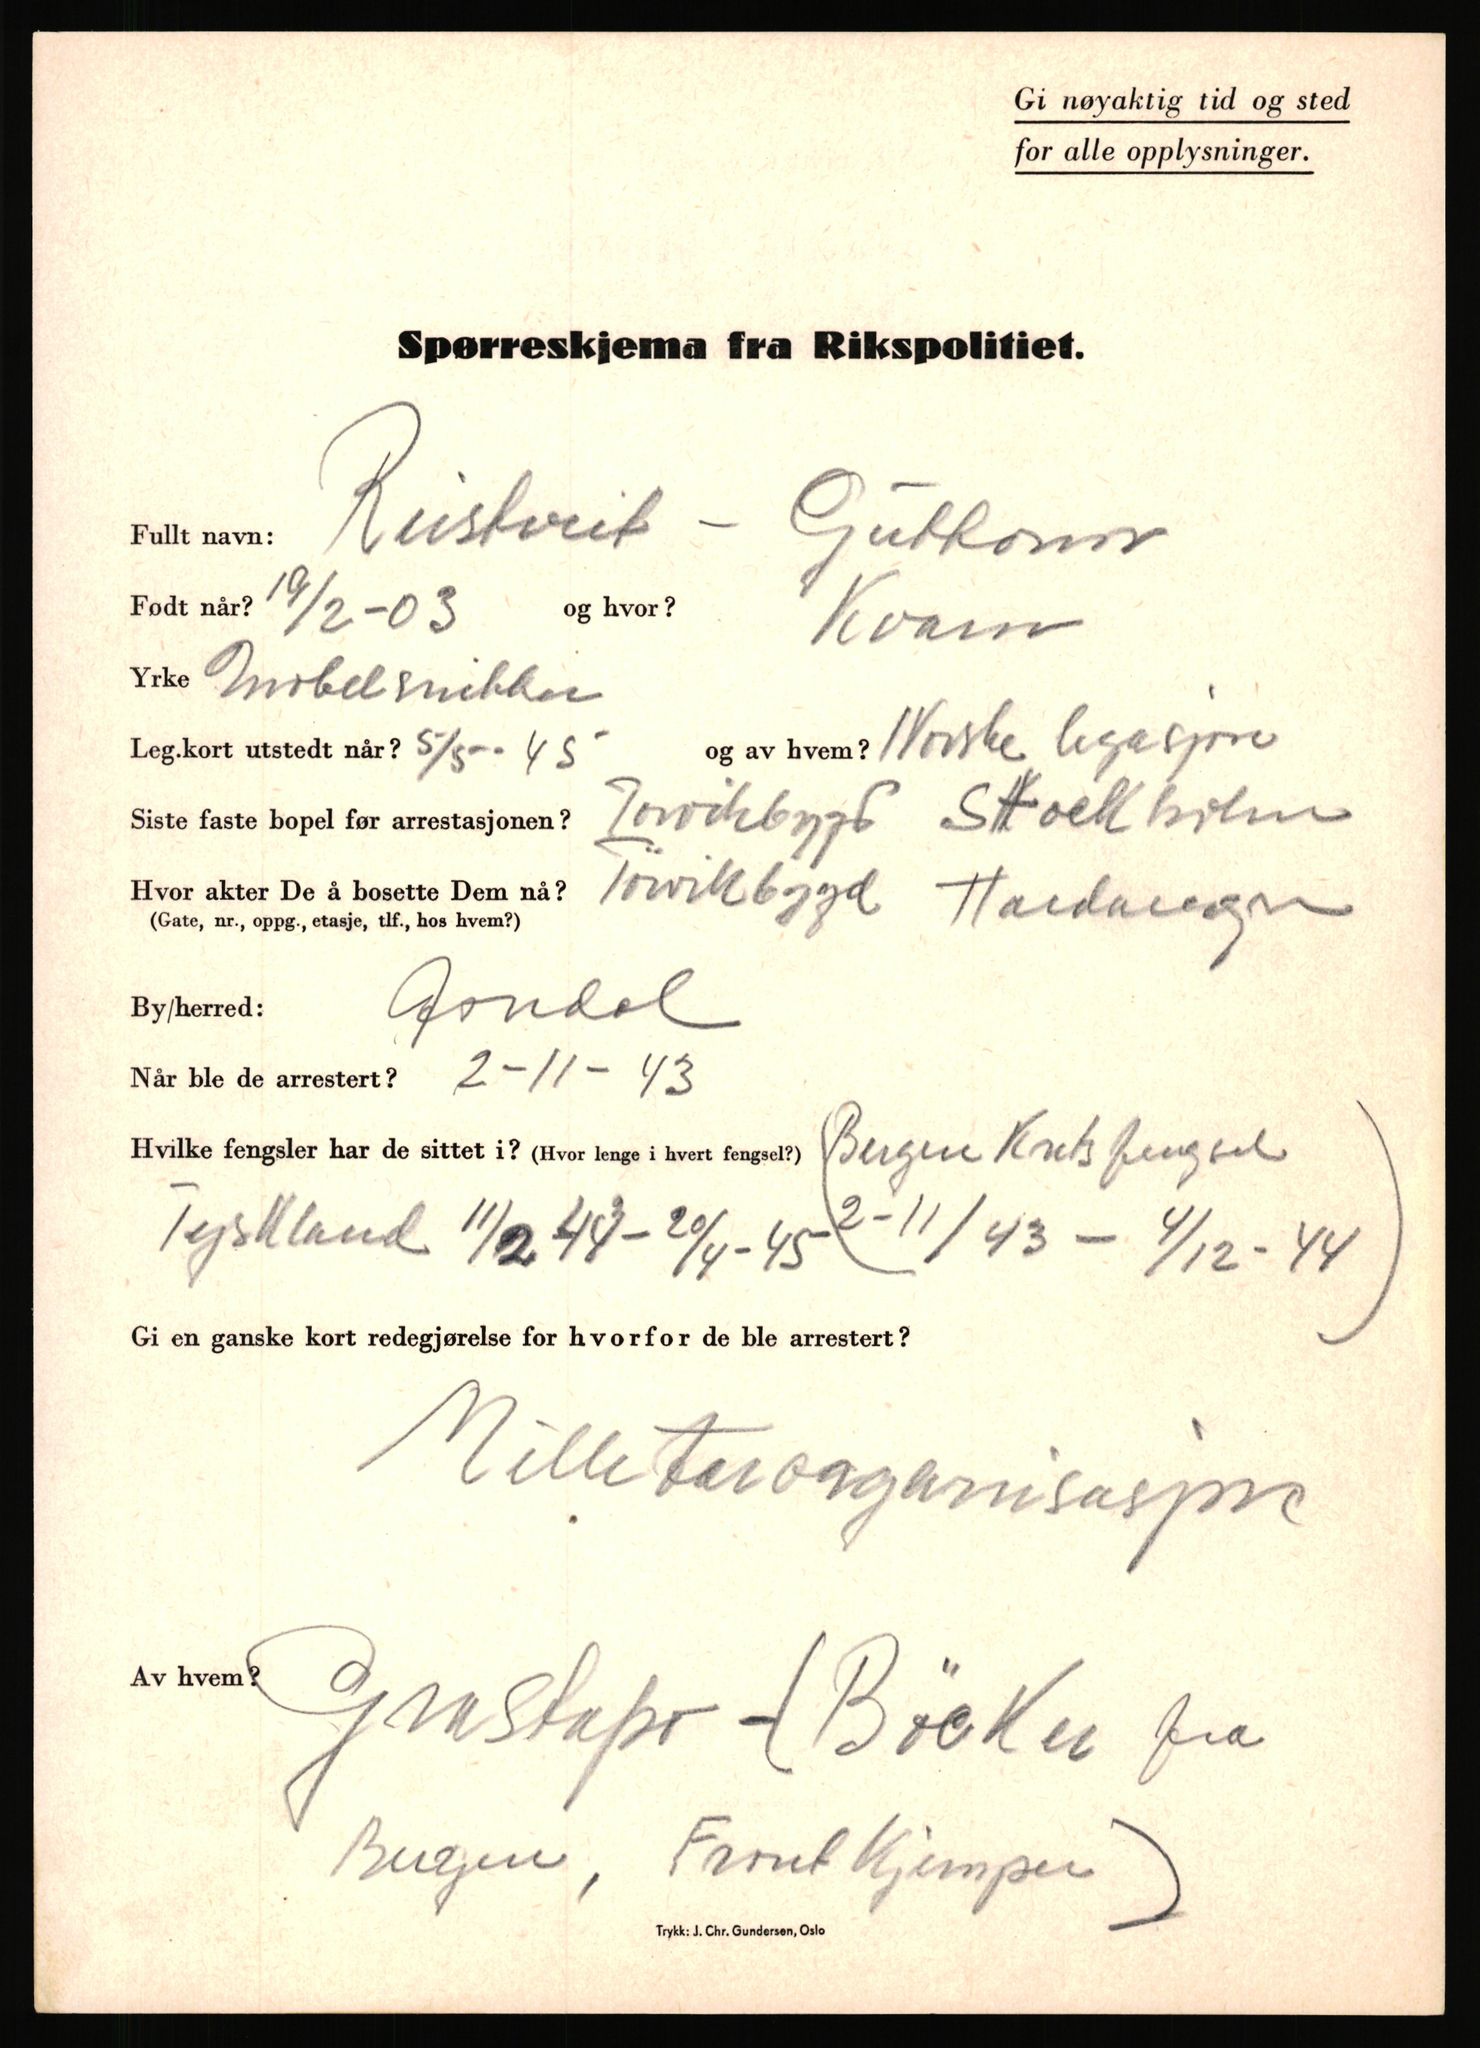 Gi nøyaktig tid og sted
for alle opplysninger.
Spørreskjema fra Rikspolitiet.
Fullt navn: Ristveit - Guttorm
Født når? 19/2-03 og hvor? Kvam
Yrke Møbelsnikker
Leg.kort utstedt når? 5/5-45 og av hvem? Norske legasjon
Siste faste bopel før arrestasjonen? Torvikbygd Stockholm
Hvor akter De å bosette Dem nå? Törvikbygd Hardanger
(Gate, nr., oppg., etasje, tlf., hos hvem?)
By/herred: Jondal
Når ble de arrestert? 2-11-43
Hvilke fengsler har de sittet i? (Hvor lenge i hvert fengsel?) (Bergen Krets fengsel
Tyskland 11/2 44 - 20/4-45 2-11/43 - 4/12-44)
Gi en ganske kort redegjørelse for hvorfor de ble arrestert?
Milletærorganisasjon
Av hvem? Gestapo - (Böcker fra
Bergen, Front Kjemper)
Trykk: J. Chr. Gundersen, Oslo